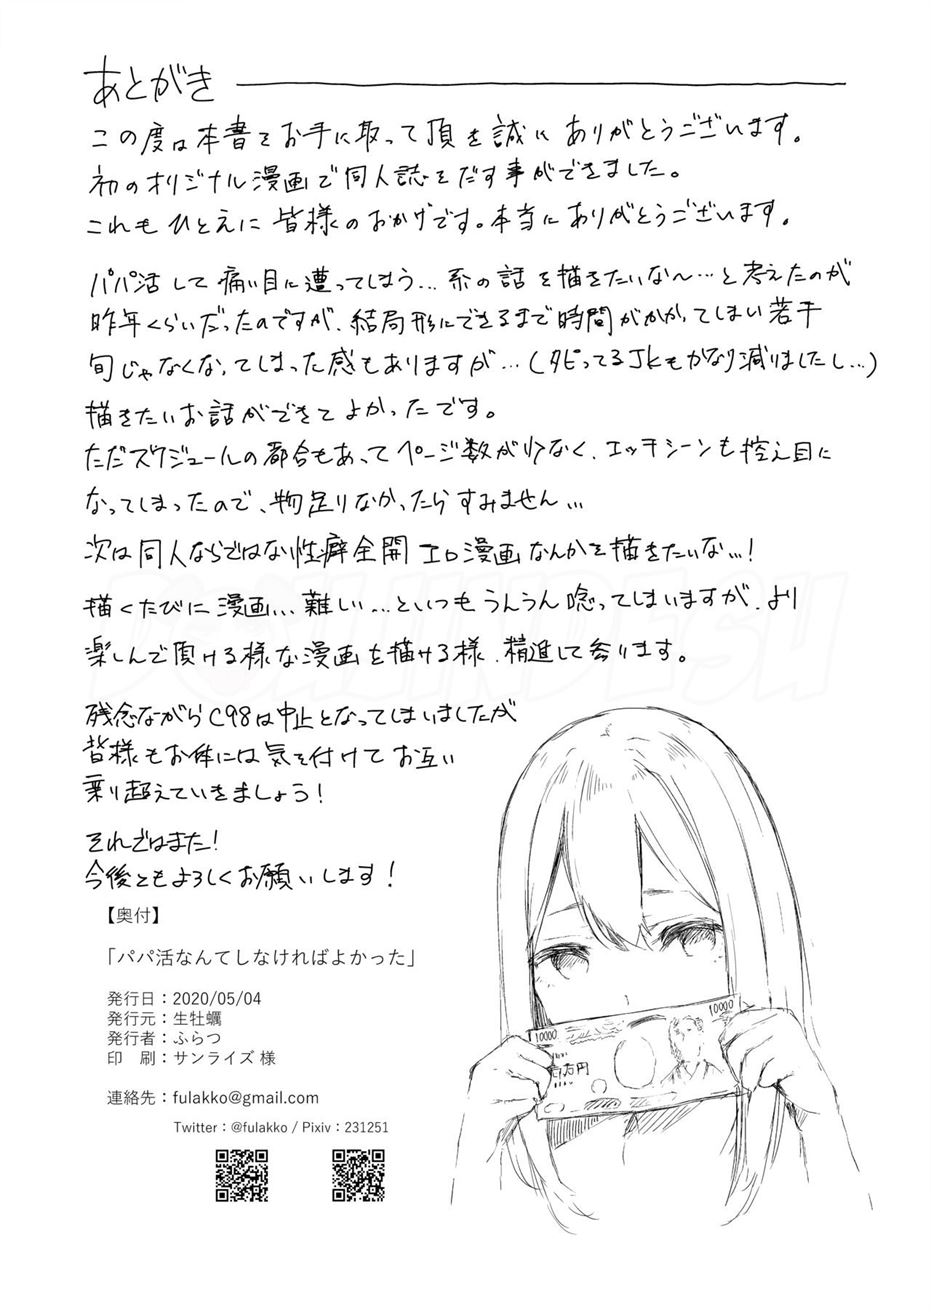 あとがき
この度は本書をお手に取って頂き誠にありがとうございます。
初のオリジナル漫画で同人誌をだす事ができました。
これもひとえに皆様のおかげです。本当にありがとうございます。
パパ活して痛い目に遭ってしまう…系の話を描きたいな〜…と考えたのが
昨年くらいだったのですが、結局形にできるまで時間がかかってしまい若干
旬じゃなくなってしまった感もありますが…(タピってるJKもかなり減りましたし…)
描きたいお話ができてよかったです。
ただスケジュールの都合もあってページ数が少なく、エッチシーンも控え目に
なってしまったので、物足りなかったらすみません…
次は同人ならではな性癖全開エロ漫画なんかを描きたいな…!
描くたびに漫画…難しい…といつもうんうん唸ってしまいますが、より
楽しんで頂ける様な漫画を描ける様、精進して参ります。
DOUJINDESU
残念ながらC98は中止となってしまいましたが
皆様もお体には気を付けてお互い
乗り超えていきましょう!
それではまた!
今後ともよろしくお願いします!
【奥付】
「パパ活なんてしなければよかった」
発行日：2020/05/04
発行元：生牡蠣
発行者：ふらつ
印　刷：サンライズ 様
連絡先：fulakko@gmail.com
Twitter：@fulakko / Pixiv：231251
10000
10000
壱万円